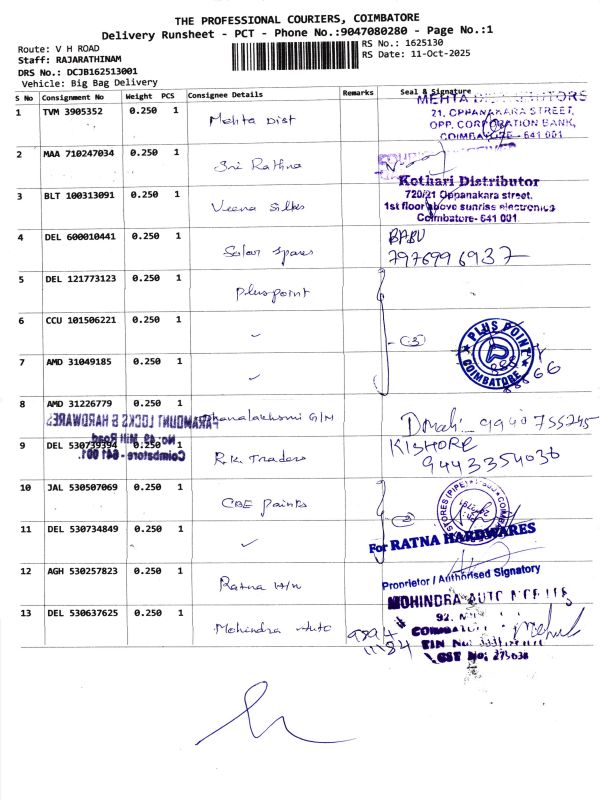 THE PROFESSIONAL COURIERS, COIMBATORE
Delivery Runsheet - PCT - Phone No.:9047080280 - Page No.:1
Route: V H ROAD
RS No.: 1625130
Staff: RAJARATHINAM
RS Date: 11-Oct-2025
DRS No.: DCJB162513001
Vehicle: Big Bag Delivery
S No Consignment No Weight PCS Consignee Details Remarks Seal & Signature
1 TVM 3905352 0.250 1 Mehta Dist
MEHTA
21, OPPANAKARA STREET,
OPP. CORPORATION BANK,
COIMBATORE - 641 001
2 MAA 710247034 0.250 1 Sri Rathna
3 BLT 100313091 0.250 1 Veena Silks
Kothari Distributor
720/21 Oppanakara street,
1st floor above sunrise electronics
Coimbatore- 641 001.
4 DEL 600010441 0.250 1 Solar Spares
BABU
7976996937
5 DEL 121773123 0.250 1 Pluspoint
6 CCU 101506221 0.250 1 ✓
(3)
PLUS POINT
COIMBATORE
7 AMD 31049185 0.250 1 ✓
8 AMD 31226779 0.250 1 Dhanalakshmi G/M
9940755245
PARAMOUNT LOCKS & HARDWARES
No: 49, Mill Road,
Coimbatore - 641 001.
9 DEL 530739394 0.250 1 R.K. Traders
KISHORE
9443354036
10 JAL 530507069 0.250 1 CBE Paints
11 DEL 530734849 0.250 1 ✓
(2)
STORES (PIPE)
For RATNA HARDWARES
12 AGH 530257823 0.250 1 Ratna H/w
Proprietor / Authorised Signatory
13 DEL 530637625 0.250 1 Mohindra Auto
9894
11184
MOHINDRA AUTO
92,
GST No: 275638